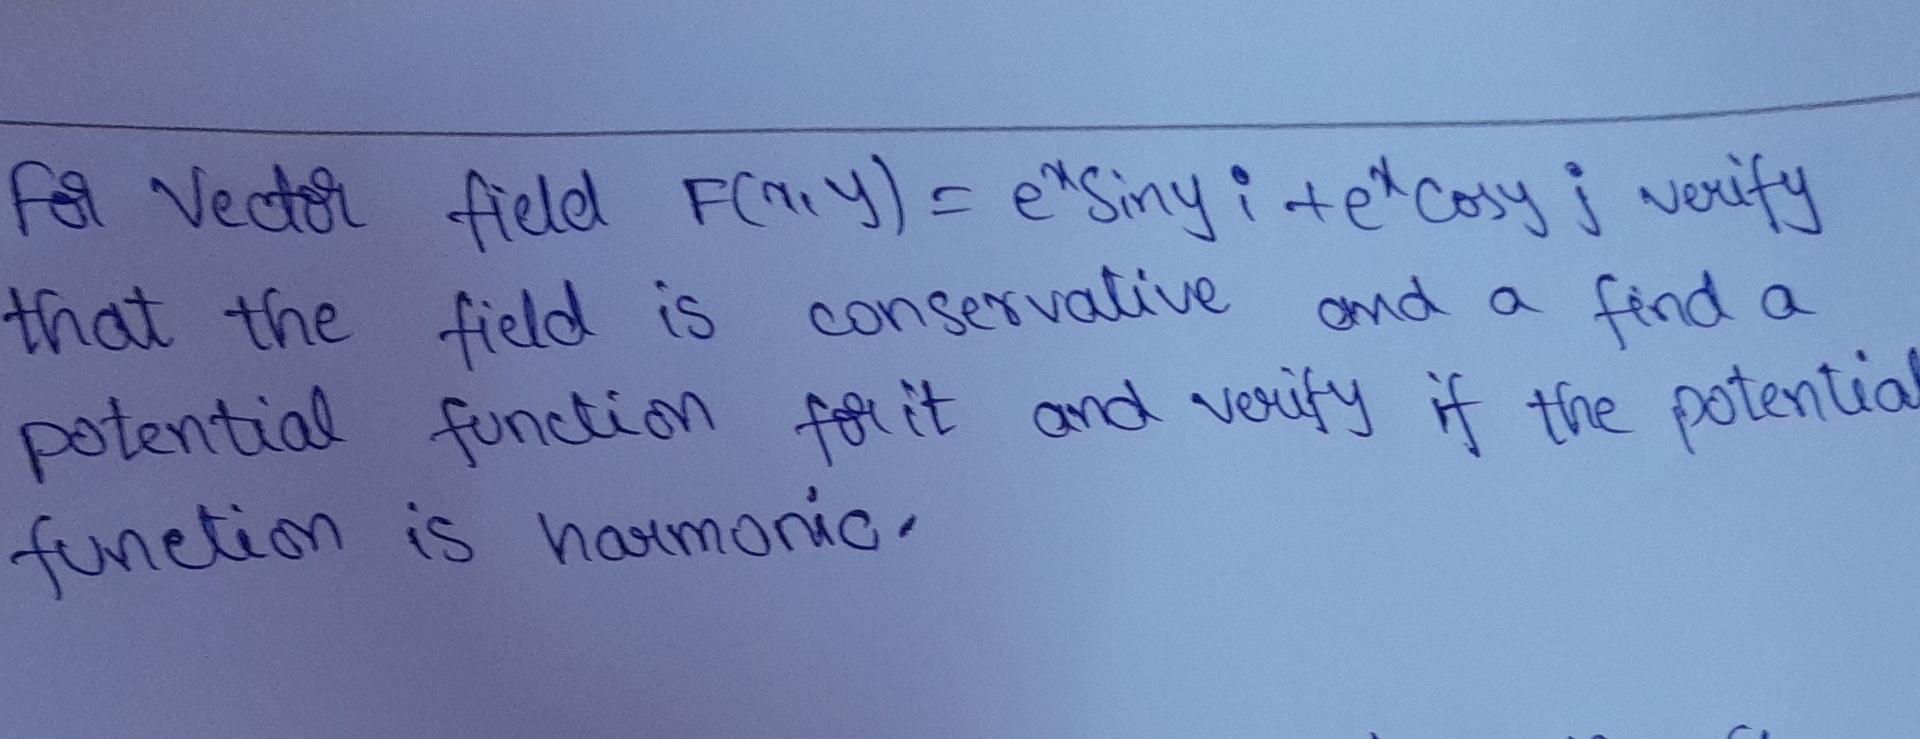 For Vector field F(x,y) = eˣ Siny i + eˣ Cosy j verify
that the field is conservative and a find a
potential function for it and verify if the potential
function is harmonic.